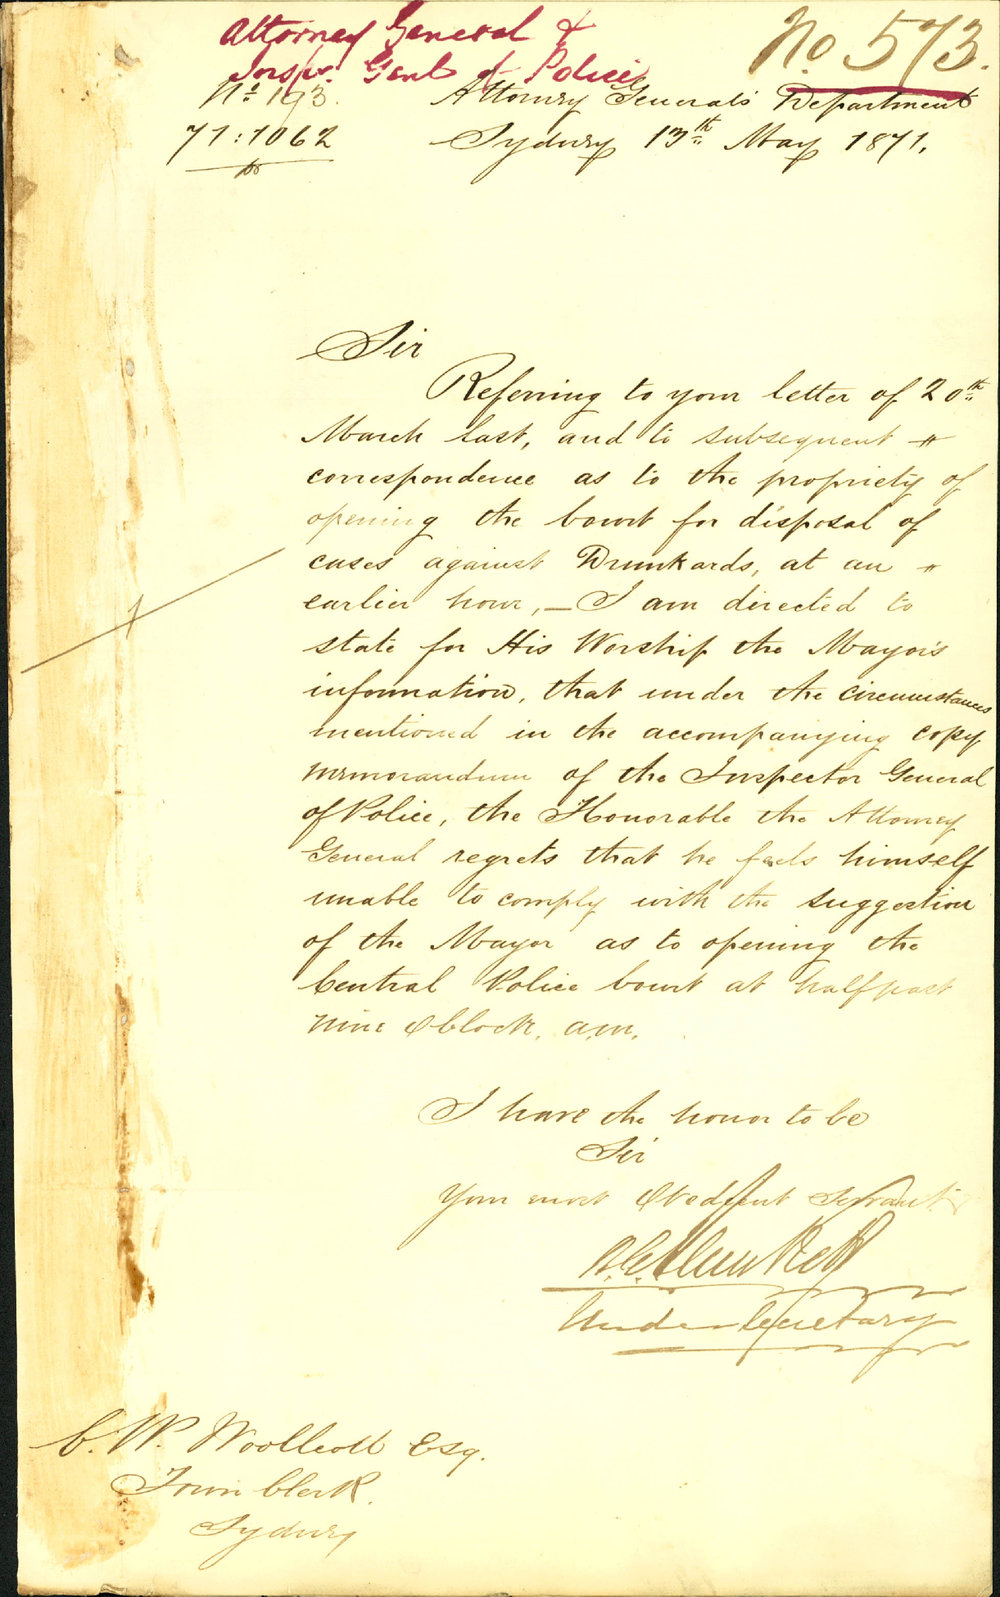 Attorney General &
Inspr. Genl of Police
No 573.
No 193.
71:1062
Attorney General's Department
Sydney 13th May 1871.
Sir
Referring to your letter of 20th
March last, and to subsequent
correspondence as to the propriety of
opening the Court for disposal of
cases against Drunkards, at an
earlier hour, — I am directed to
state for His Worship the Mayor's
information, that under the circumstances
mentioned in the accompanying copy
memorandum of the Inspector General
of Police, the Honorable the Attorney
General regrets that he feels himself
unable to comply with the suggestion
of the Mayor as to opening the
Central Police Court at half past
nine o'Clock, a.m.
I have the honor to be
Sir
Your most obedient Servant
Under Secretary
C. W. Woolcott Esq.
Town Clerk.
Sydney